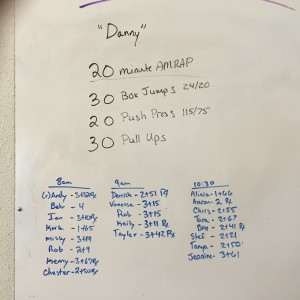 "Danny"
20 minute AMRAP
30 Box Jumps 24/20
20 Push Press 115/75
30 Pull Ups
8am
Andy - 3+
Beh - 4
Ian - 3+
Mark - 1+65
Misty - 3+19
Rob - 2+9
Kenny - 3+67Rx
Chester - 2+
9am
Derrick - 2+51 Rx
Vanessa - 3+15
Rob - 3+15
Keily - 3+11 Rx
Taylor - 3+42 Rx
10:30
Alicia - 1+66
Aaron - 2 Rx
Chris - 2+55
Tara - 2+67
Ben - 2+41 Rx
Stef - 2+21
Tanya - 2+50
Jeannine - 3+61